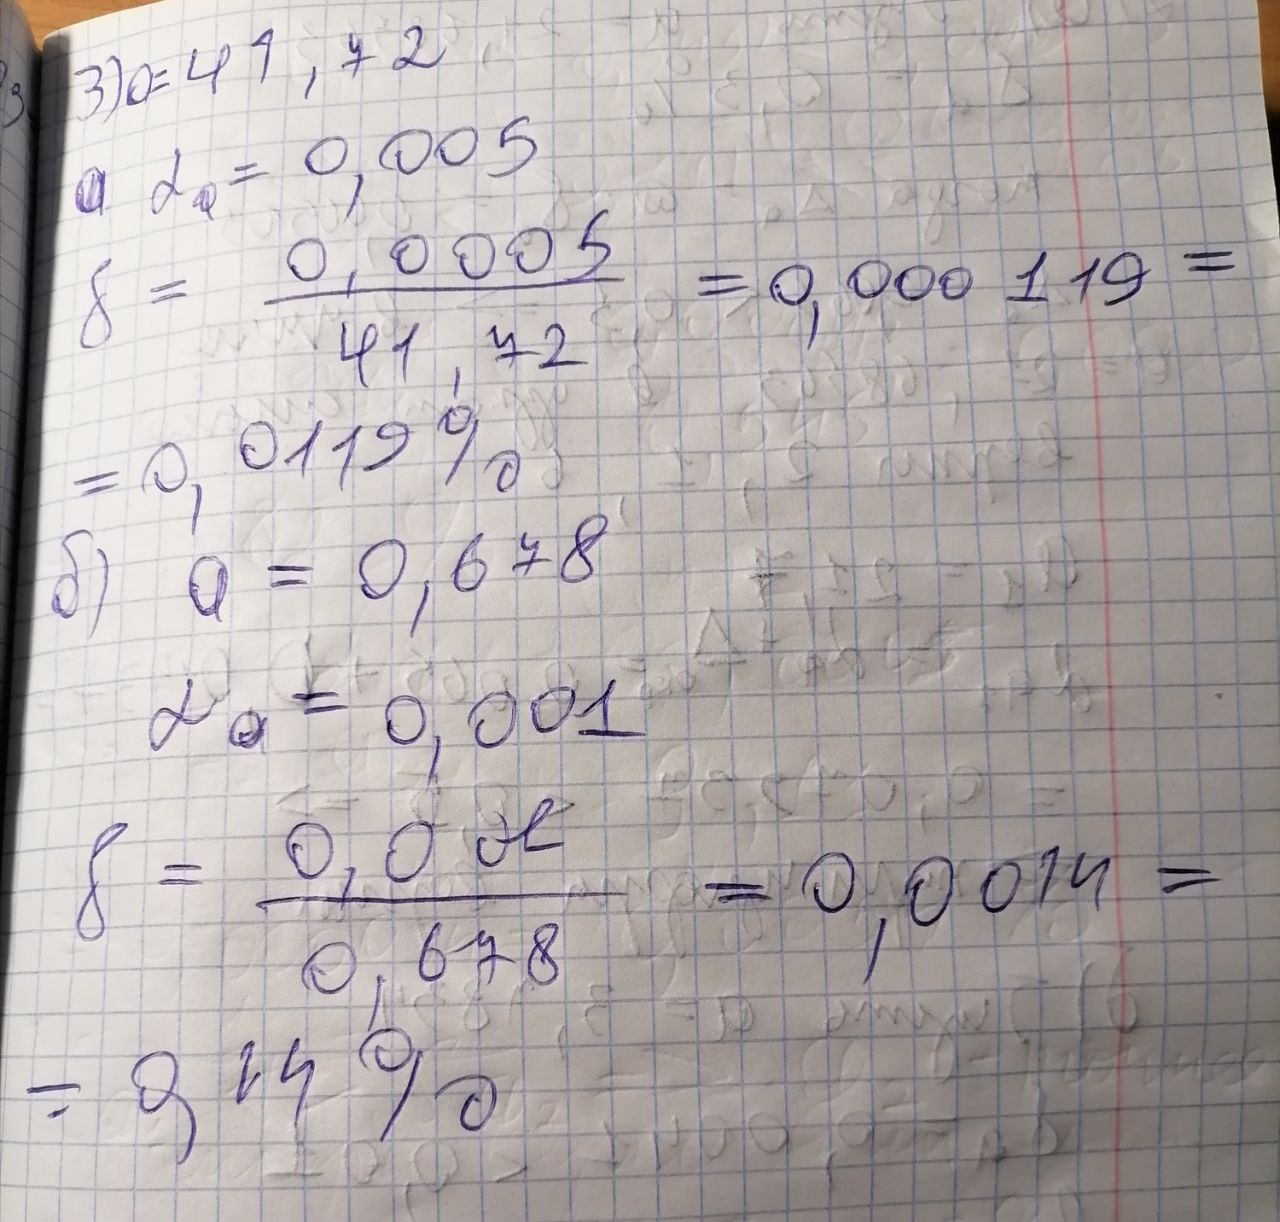 3) a = 41,72
а α_a = 0,005
δ = 0,0005 / 41,72 = 0,000119 =
= 0,0119 %
б) a = 0,678
α_a = 0,001
δ = / 0,678 = 0,0014 =
= 0,14 %